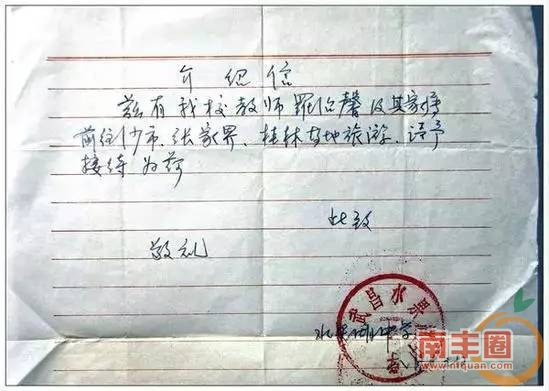 介绍信
兹有我校教师罗伯馨及其家属
前往沙市、张家界、桂林等地旅游、请予
接待为荷
此致
敬礼
武昌水果湖
水果湖中学
南丰圈
www.nfquan.com